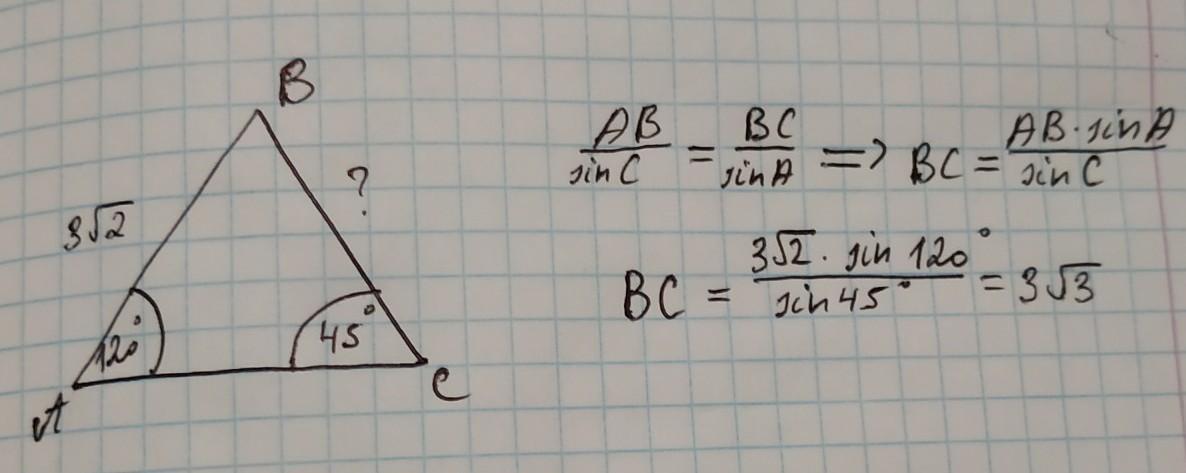 B
3√2
?
120°
45°
A
C
AB/sinC = BC/sinA => BC = AB·sinA/sinC
BC = 3√2 · sin 120°/sin 45° = 3√3